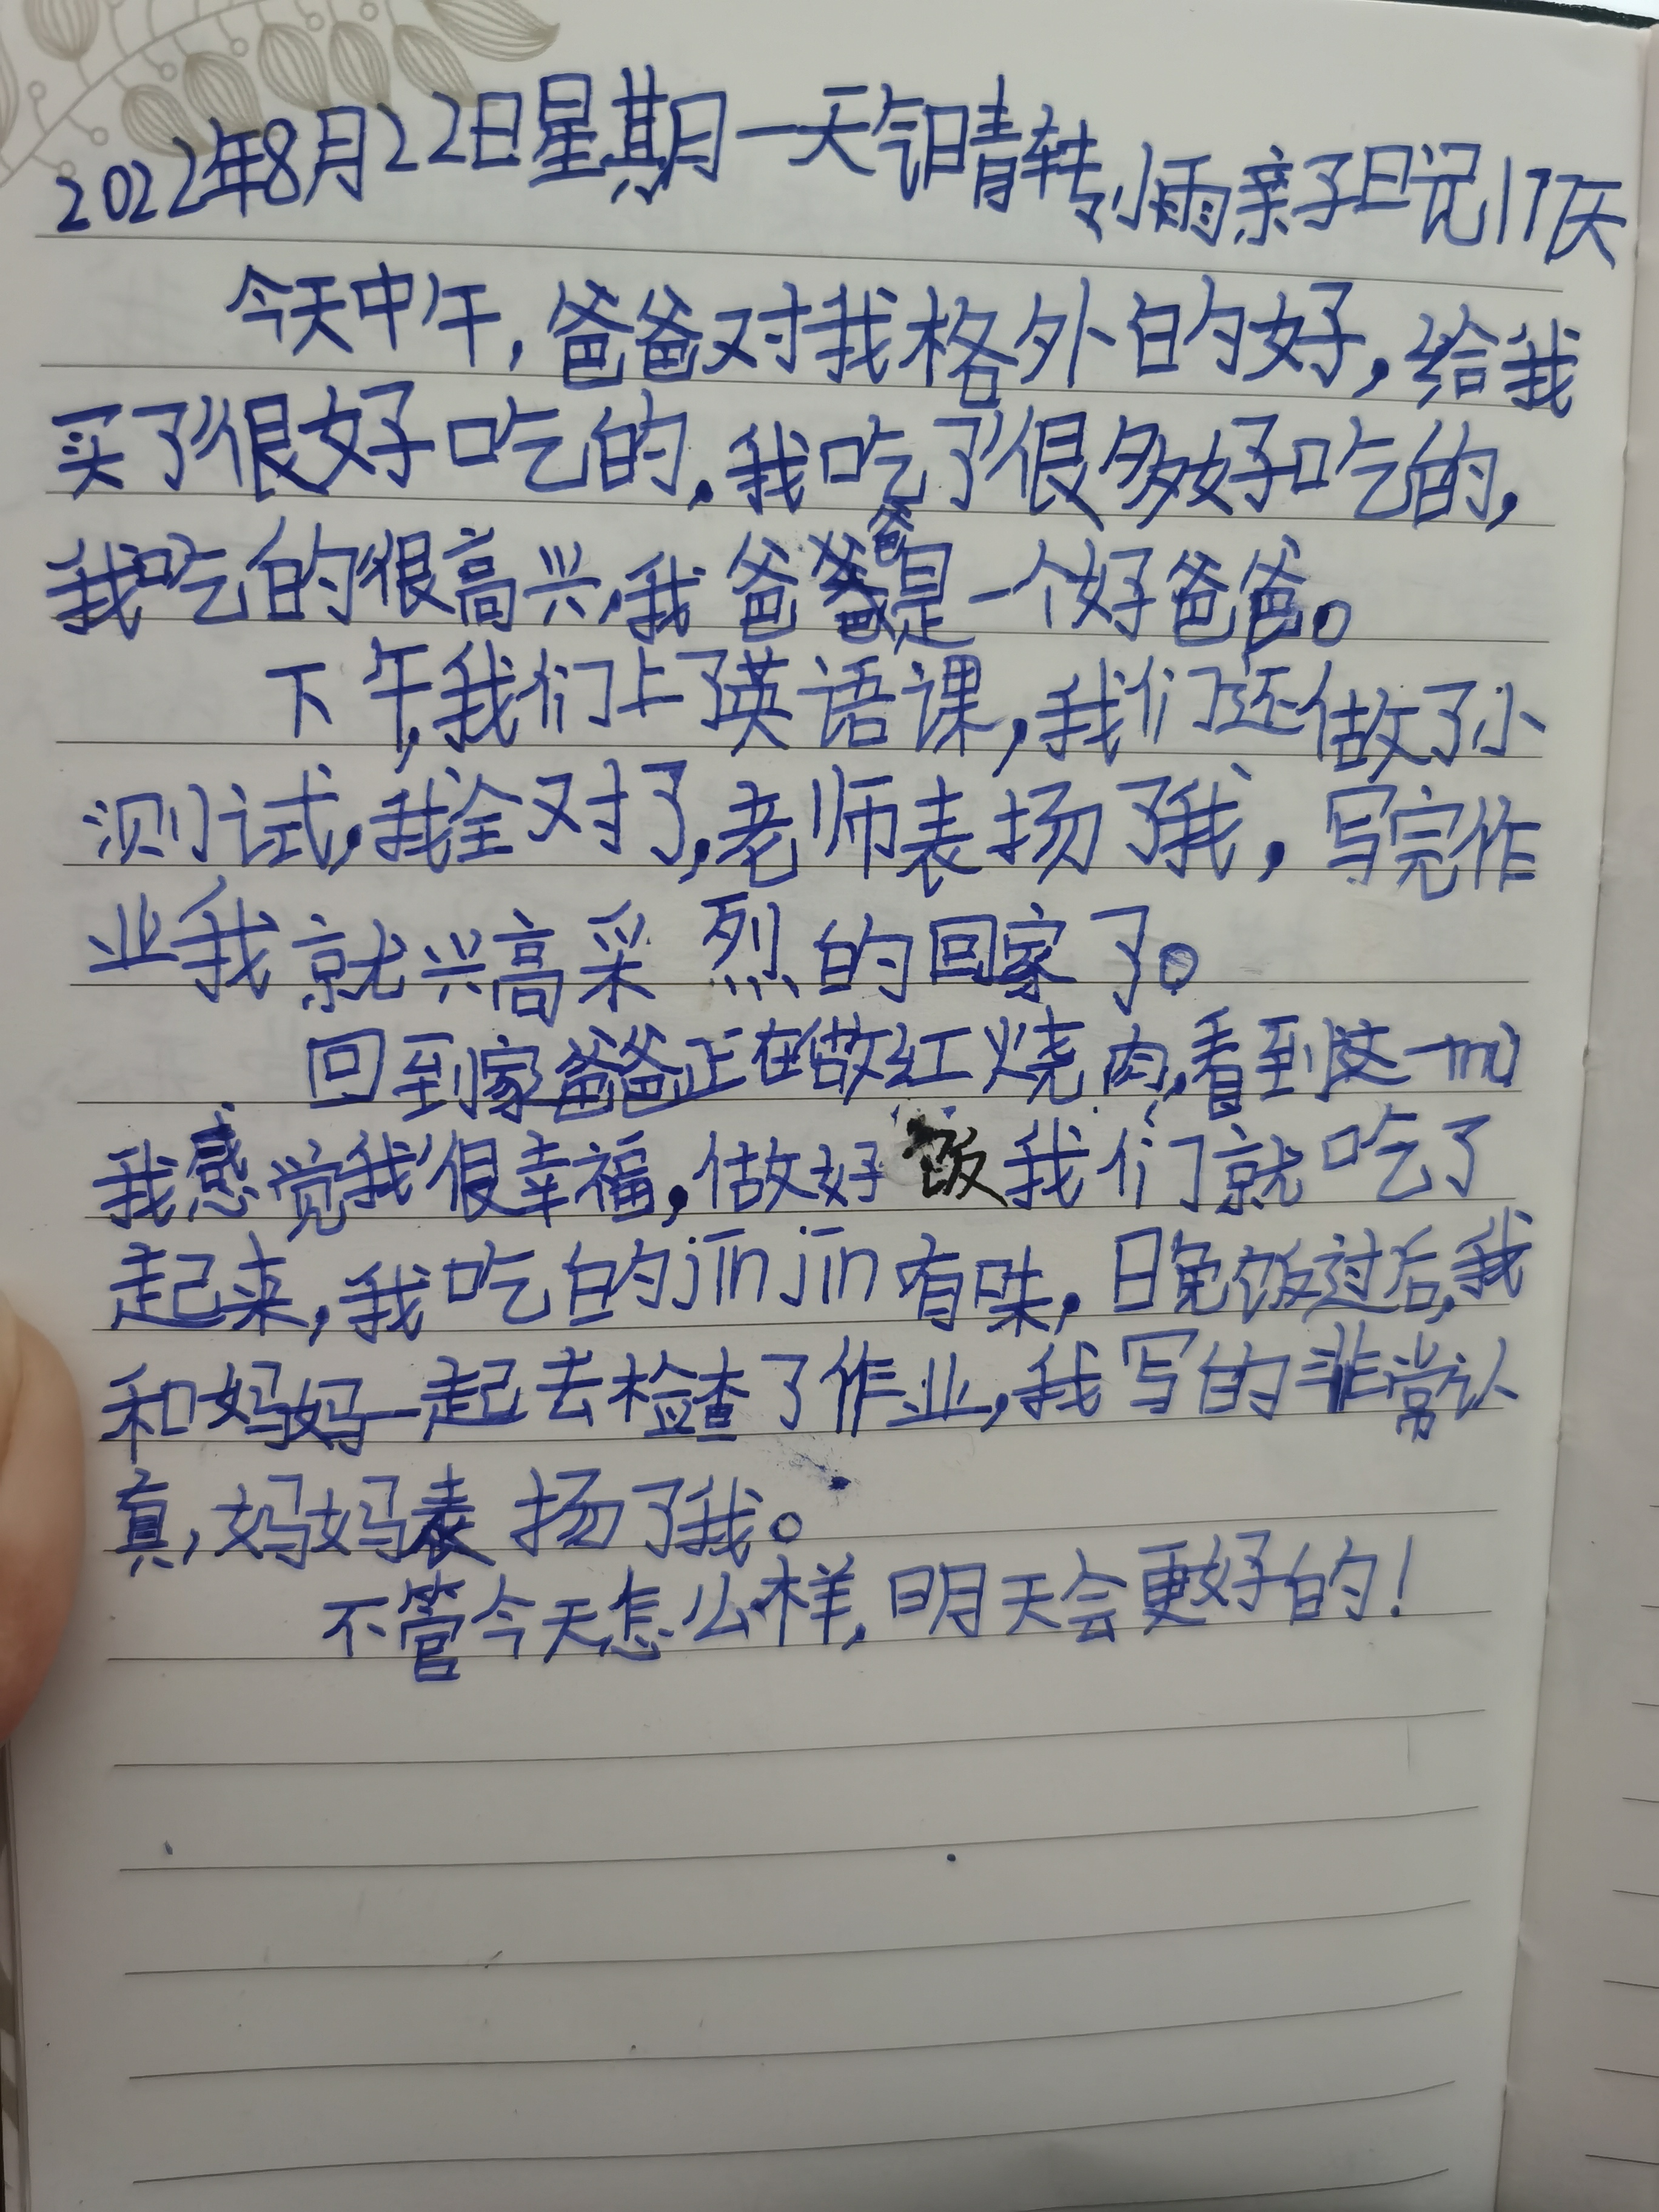 2022年8月22日星期一天气晴转小雨亲子日记17天
今天中午,爸爸对我格外的好,给我
买了很好吃的,我吃了很多好吃的,
我吃的很高兴,我爸爸是一个好爸爸。
下午,我们上了英语课,我们还做了小
测试,我全对了,老师表扬了我,写完作
业我就兴高采烈的回家了。
回到家爸爸正在做红烧肉,看到这一mù
我感觉我很幸福,做好饭我们就吃了
起来,我吃的jīnjīn有味,晚饭过后,我
和妈妈一起去检查了作业,我写的非常认
真,妈妈表扬了我。
不管今天怎么样,明天会更好的!